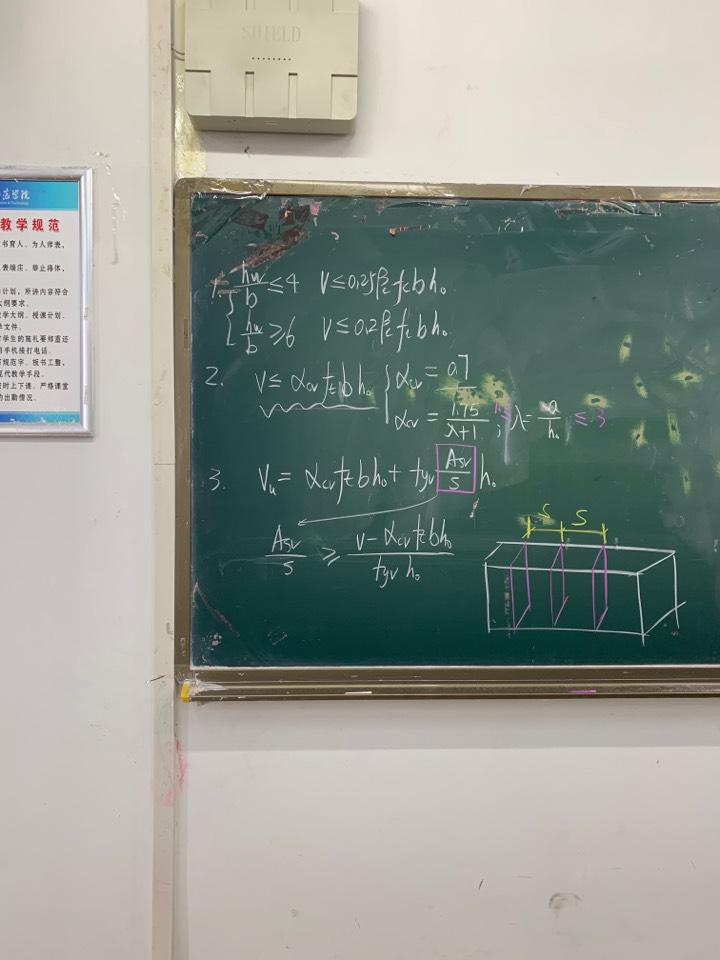 SHIELD
教学规范
书育人、为人师表，
表端庄、举止得体，
计划，所讲内容符合
大纲要求。
学大纲、授课计划、
学生的施礼要郑重还
用手机接打电话。
规范字、板书工整，
现代教学手段。
按时上下课，严格课堂
的出勤情况。
1. { hw/b ≤ 4 V ≤ 0.25βc fc b h₀
hw/b ≥ 6 V ≤ 0.2βc fc b h₀
2. V ≤ αcv ft b h₀ { αcv = 0.7
αcv = 1.75/(λ+1) ; 1 ≤ λ = a/h₀ ≤ 3
3. Vu = αcv ft b h₀ + fyv Asv/s h₀
Asv/s ≥ (V − αcv ft b h₀)/(fyv h₀)
S S